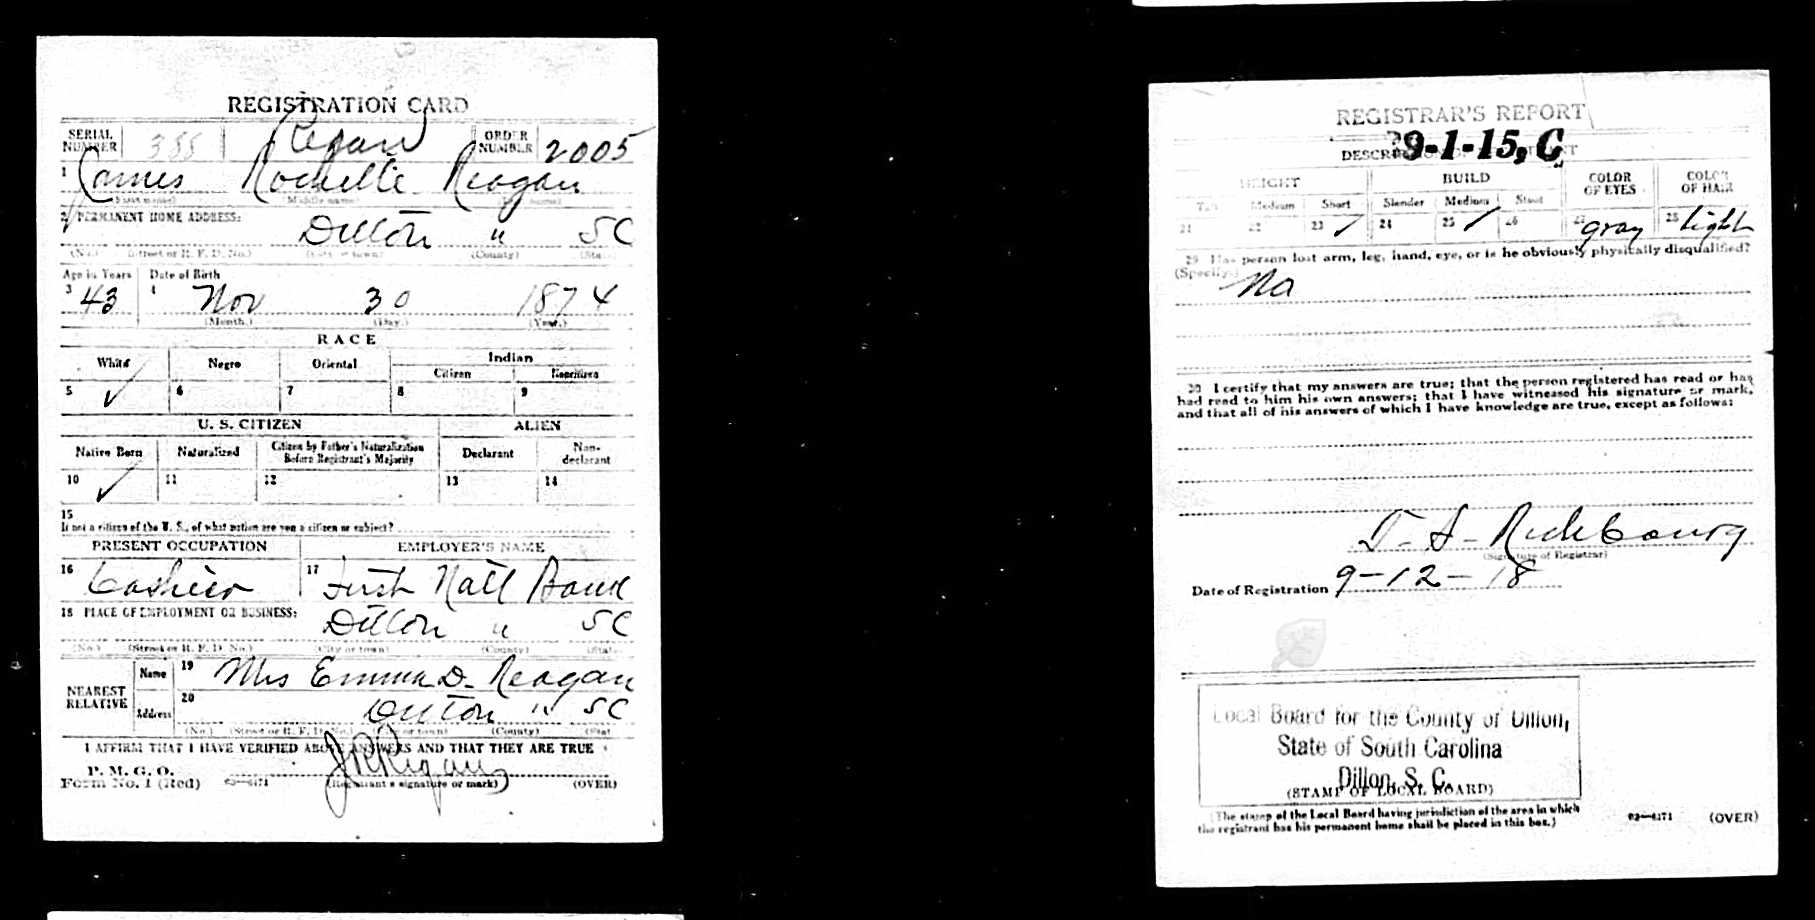 REGISTRATION CARD
SERIAL NUMBER 388 Regan ORDER NUMBER 2005
1 James Rochelle Reagan
(First name) (Middle name) (Last name)
2 PERMANENT HOME ADDRESS:
Dillon " SC
(No.) (Street or R. F. D. No.) (City or town) (County) (State)
Age in Years Date of Birth
3 43 4 Nov 30 1874
(Month.) (Day.) (Year.)
RACE
White Negro Oriental Indian
Citizen Noncitizen
5 ✓ 6 7 8 9
U. S. CITIZEN ALIEN
Native Born Naturalized Citizen by Father's Naturalization Before Registrant's Majority Declarant Non-declarant
10 ✓ 11 12 13 14
15
If not a citizen of the U. S., of what nation are you a citizen or subject?
PRESENT OCCUPATION EMPLOYER'S NAME
16 Cashier 17 First Natl Bank
18 PLACE OF EMPLOYMENT OR BUSINESS:
Dillon " SC
(No.) (Street or R. F. D. No.) (City or town) (County) (State)
NEAREST RELATIVE
Name 19 Mrs Emma D. Reagan
Address 20 Dillon " SC
(No.) (Street or R. F. D. No.) (City or town) (County) (State)
I AFFIRM THAT I HAVE VERIFIED ABOVE ANSWERS AND THAT THEY ARE TRUE
P. M. G. O.
Form No. 1 (Red) 03—6171 J R Regan (Registrant's signature or mark) (OVER)
REGISTRAR'S REPORT
39-1-15, C
DESCRIPTION OF REGISTRANT
HEIGHT BUILD COLOR OF EYES COLOR OF HAIR
Tall Medium Short Slender Medium Stout
21 22 23 ✓ 24 25 ✓ 26 27 gray 28 light
29 Has person lost arm, leg, hand, eye, or is he obviously physically disqualified?
(Specify.) No
30 I certify that my answers are true; that the person registered has read or has
had read to him his own answers; that I have witnessed his signature or mark,
and that all of his answers of which I have knowledge are true, except as follows:
D. S. Richbourg
(Signature of Registrar)
Date of Registration 9-12-18
Local Board for the County of Dillon,
State of South Carolina
Dillon, S. C.
(STAMP OF LOCAL BOARD)
(The stamp of the Local Board having jurisdiction of the area in which
the registrant has his permanent home shall be placed in this box.)
03—6171 (OVER)